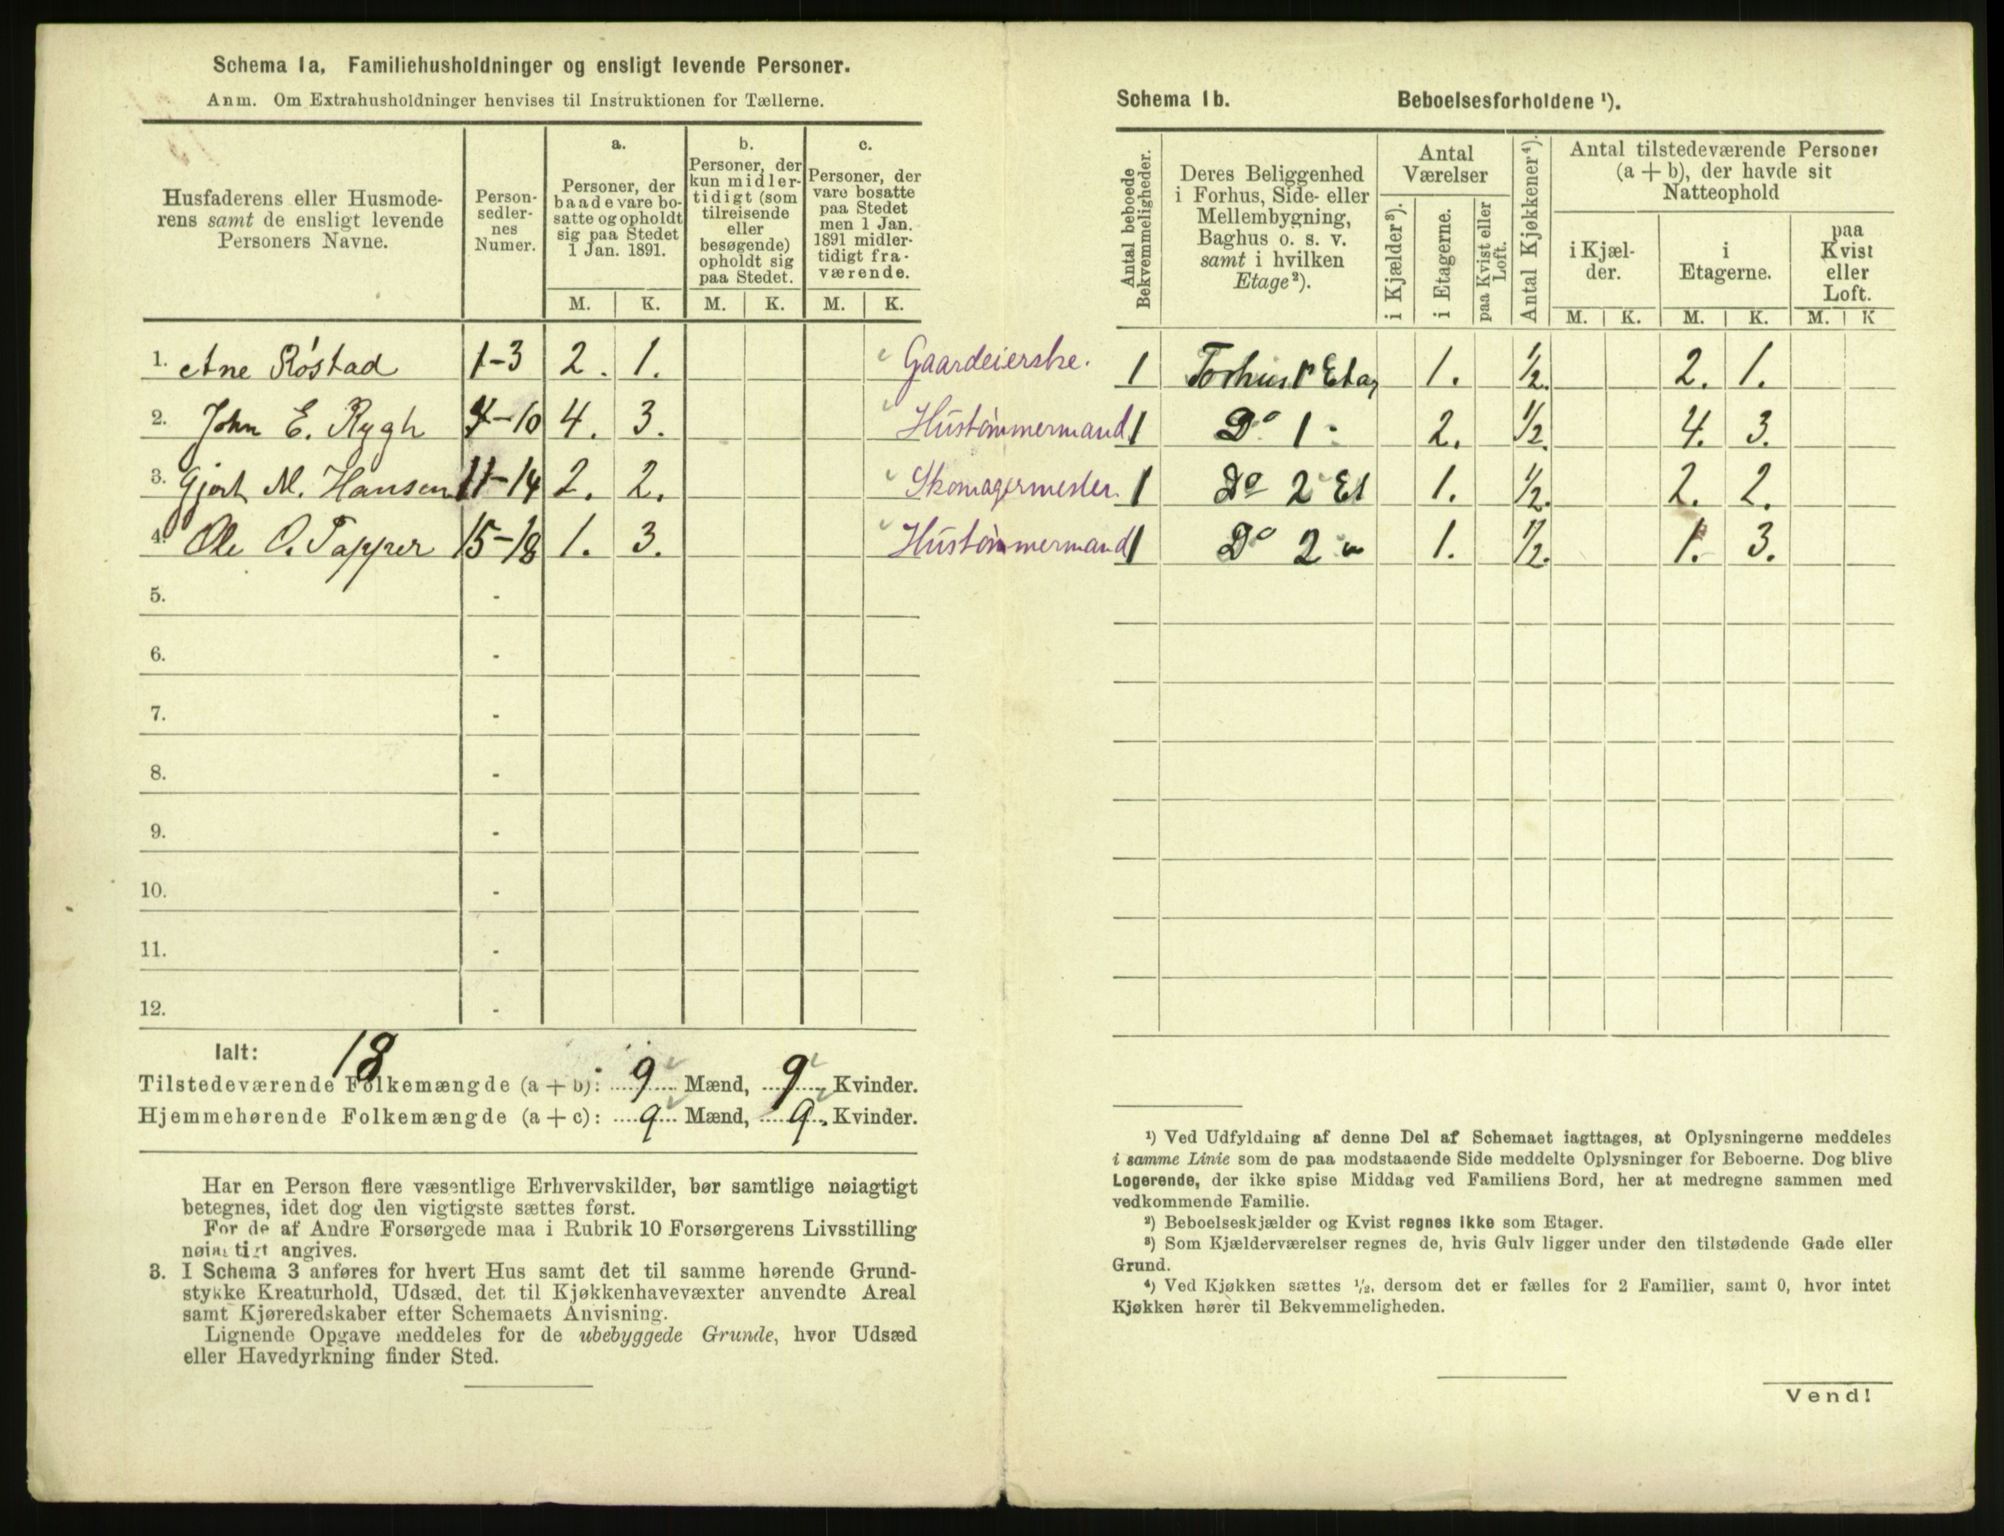 Schema 1a, Familiehusholdninger og ensligt levende Personer.
Anm. Om Extrahusholdninger henvises til Instruktionen for Tællerne.
Husfaderens eller Husmode-
rens samt de ensligt levende
Personers Navne.
Person-
sedler-
nes
Numer.
a.
Personer, der
baade vare bo-
satte og opholdt
sig paa Stedet
1 Jan. 1891.
b.
Personer, der
kun midler-
tidigt (som
tilreisende
eller
besøgende)
opholdt sig
paa Stedet.
c.
Personer, der
vare bosatte
paa Stedet
men 1 Jan.
1891 midler-
tidigt fra-
værende.
M. K. M. K. M. K.
1. Ane Röstad 1-3 2. 1. Gaardeierske.
2. John E. Rygh 4-10 4. 3. Hustømmermand
3. M. Hansen 11-14 2. 2. Skomagermester.
4. Ole O. Tapper 15-18 1. 3. Hustømmermand
5. -
6. -
7. -
8. -
9. -
10. -
11. -
12. -
Ialt: 18
Tilstedeværende Folkemængde (a + b): 9 Mænd, 9 Kvinder.
Hjemmehørende Folkemængde (a + c): 9 Mænd, 9. Kvinder.
Har en Person flere væsentlige Erhvervskilder, bør samtlige nøiagtigt
betegnes, idet dog den vigtigste sættes først.
For de af Andre Forsørgede maa i Rubrik 10 Forsørgerens Livsstilling
nøiagtigt angives.
3. I Schema 3 anføres for hvert Hus samt det til samme hørende Grund-
stykke Kreaturhold, Udsæd, det til Kjøkkenhavevæxter anvendte Areal
samt Kjøreredskaber efter Schemaets Anvisning.
Lignende Opgave meddeles for de ubebyggede Grunde, hvor Udsæd
eller Havedyrkning finder Sted.
Schema 1b. Beboelsesforholdene ¹).
Antal beboede
Bekvemmeligheder.
Deres Beliggenhed
i Forhus, Side- eller
Mellembygning,
Baghus o. s. v.
samt i hvilken
Etage²).
Antal
Værelser
i Kjælder³).
i Etagerne.
paa Kvist eller
Loft.
Antal Kjøkkener⁴).
Antal tilstedeværende Personer
(a + b), der havde sit
Natteophold
i Kjæl-
der.
i
Etagerne.
paa
Kvist
eller
Loft.
M. K. M. K. M. K
1 Forhus 1 Etag 1. ½. 2. 1.
1 Do 1 " 2. ½. 4. 3.
1 Do 2 Et 1. ½. 2. 2.
1 Do 2 " 1. ½. 1. 3.
¹) Ved Udfyldning af denne Del af Schemaet iagttages, at Oplysningerne meddeles
i samme Linie som de paa modstaaende Side meddelte Oplysninger for Beboerne. Dog blive
Logerende, der ikke spise Middag ved Familiens Bord, her at medregne sammen med
vedkommende Familie.
²) Beboelseskjælder og Kvist regnes ikke som Etager.
³) Som Kjælderværelser regnes de, hvis Gulv ligger under den tilstødende Gade eller
Grund.
⁴) Ved Kjøkken sættes ½, dersom det er fælles for 2 Familier, samt 0, hvor intet
Kjøkken hører til Bekvemmeligheden.
Vend!